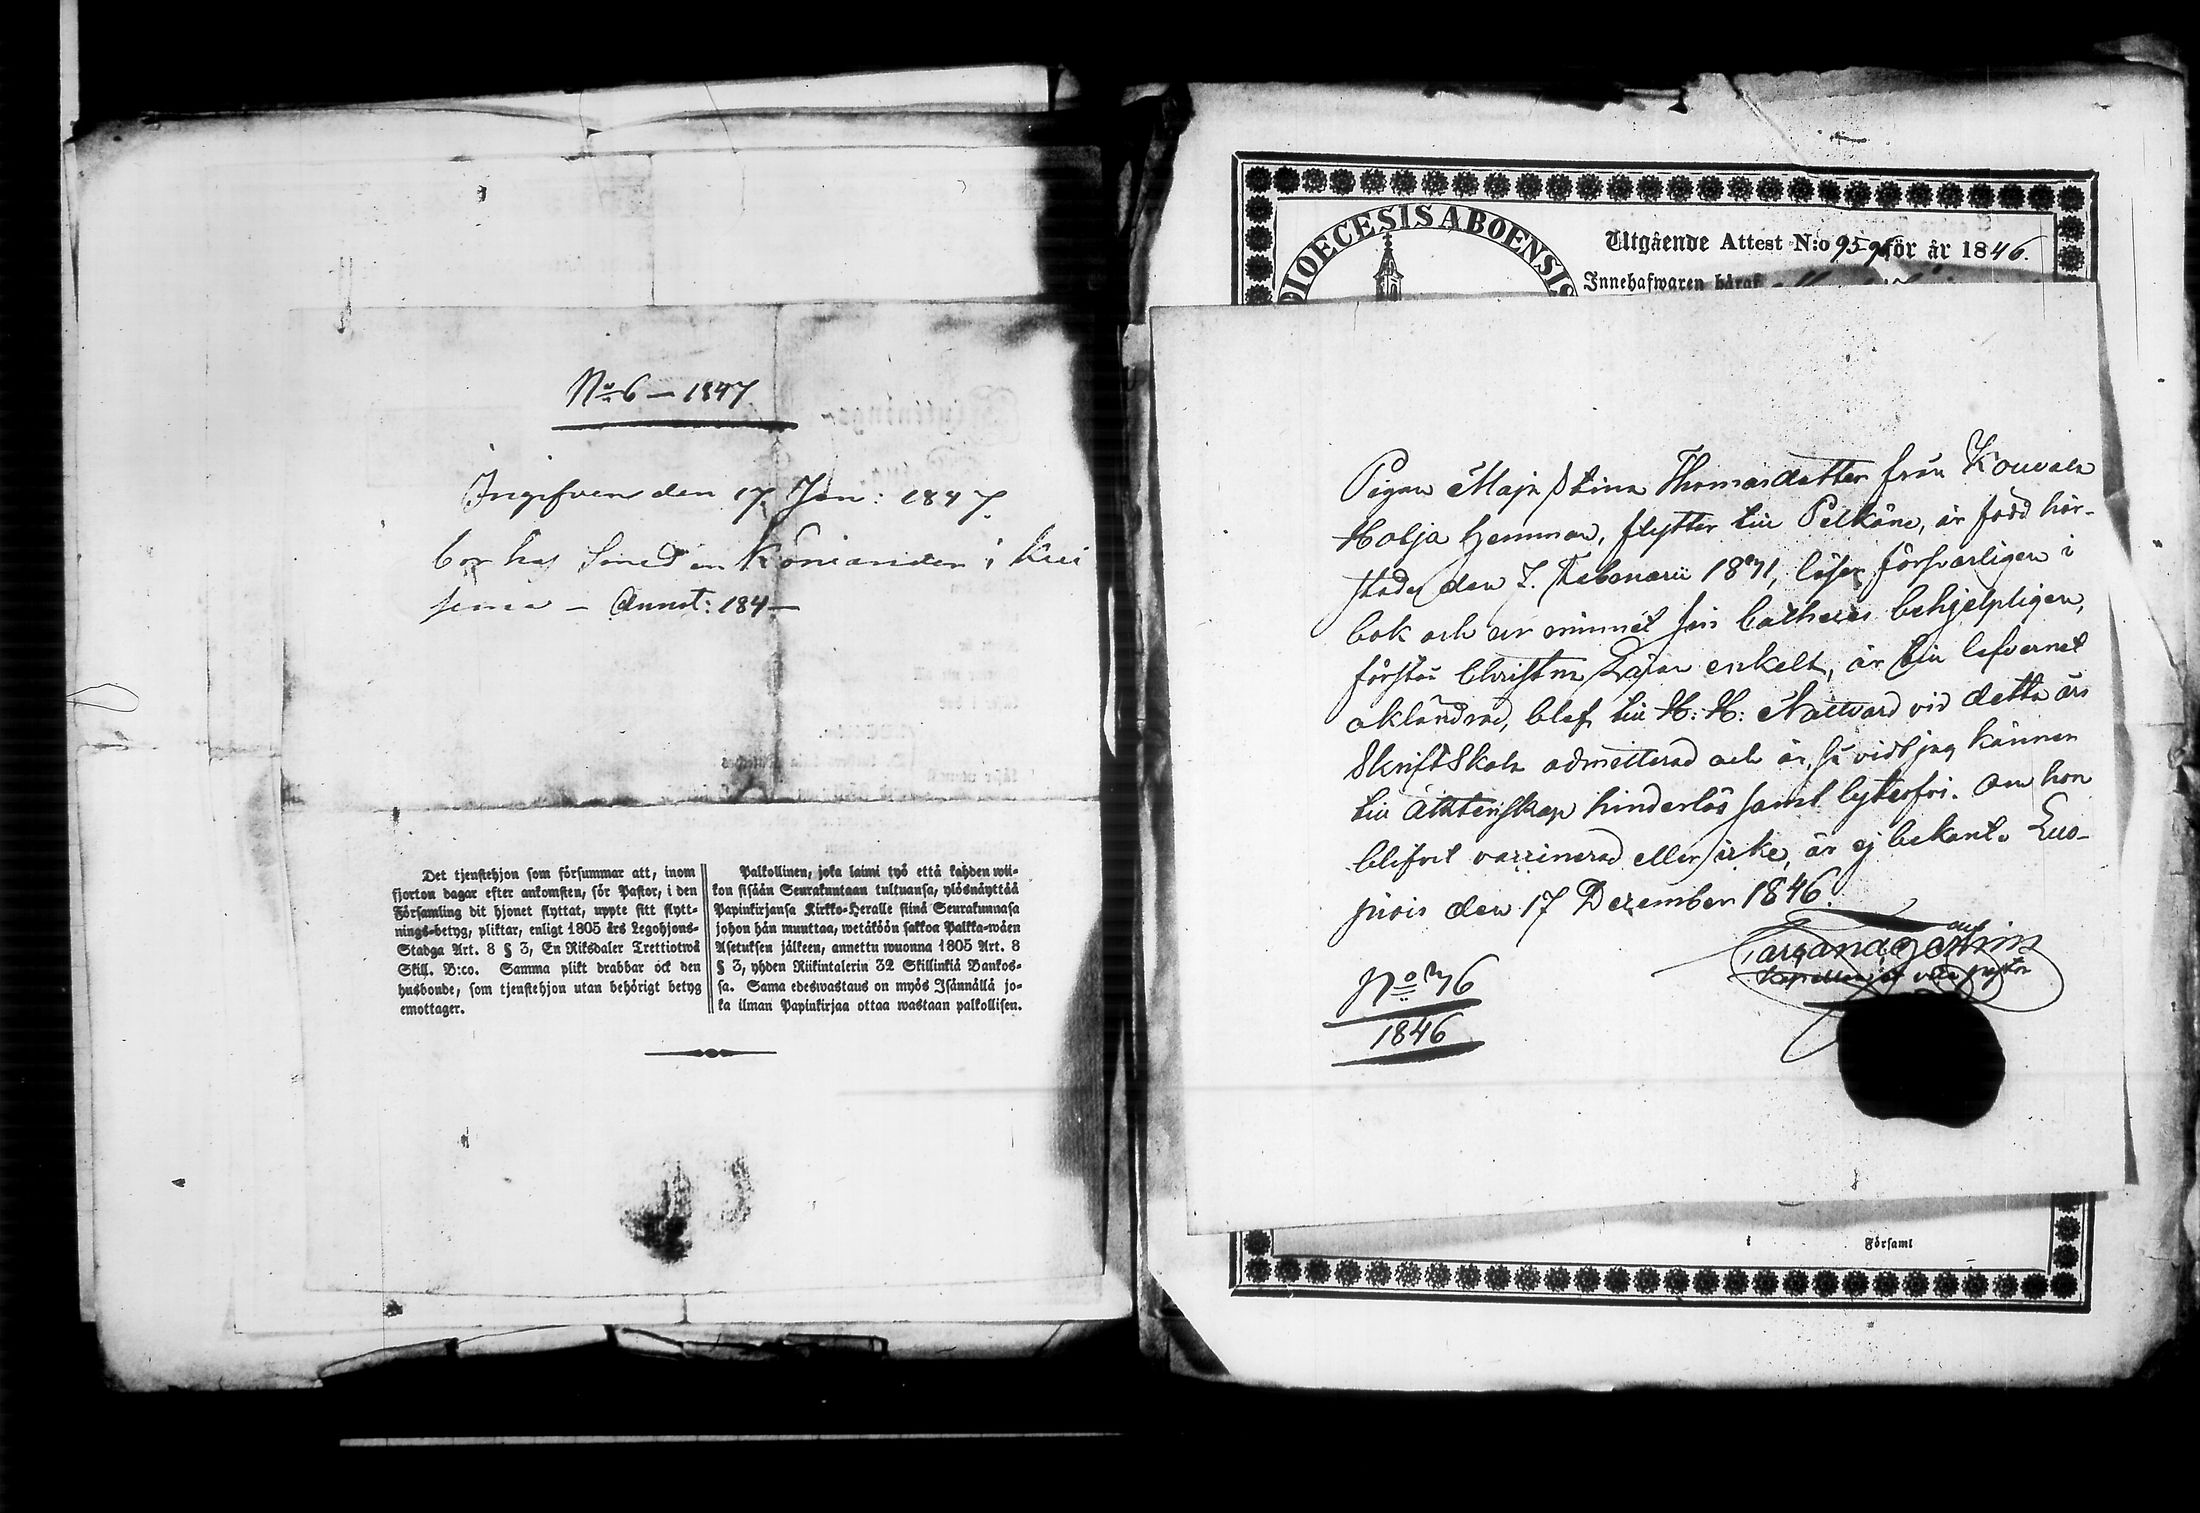 No 6 — 1847
Ingifven den 17 Jan: 1847.
bor hos Smeden Koniander i
Annot: 184
Det tjenstehjon som försummar att, inom
fjorton dagar efter ankomsten, för Pastor, i den
Församling dit hjonet flyttat, uppte sitt flytt-
nings-betyg, pliktar, enligt 1805 års Legohjons-
Stadga Art. 8 § 3, En Riksdaler Trettiotwå
Skill. B:co. Samma plikt drabbar ock den
husbonde, som tjenstehjon utan behörigt betyg
emottager.
Palkollinen, joka laimi lyö että kahden wii-
kon sisään Seurakuntaan tultuansa, ylösnäyttää
Papinkirjansa Kirkko-Heralle siinä Seurakunnasa
johon hän muuttaa, wetäköön sakkoa Palkka-wäen
Asetuksen jälkeen, annettu wuonna 1805 Art. 8
§ 3, yhden Riikintalerin 32 Skillinkiä Bankos-
sa. Sama edeswastaus on myös Isännällä jo-
ka ilman Papinkirjaa ottaa wastaan palkollisen.
DIOECESIS ABOENSIS
Utgående Attest N:o 95 för år 1846.
Innehafwaren häraf
Pigan Maja Stina Thomasdotter från Kouvala
Kolja Hemman, flyttar till Pelkäne, är född här-
städes den 7. Februarii 1831, läser försvarligen i
bok och ur minnet sin Catheces behjelpligen,
förstår Christna Läran enkelt, är till lefvernet
oklandrad, blef till H: H: Nattvard vid detta års
Skriftskola admitterad och är, så vidt jag känner
till Äktenskap hinderlös samt lyterfri. Om hon
blifvit vaccinerad eller icke, är ej bekant. Luo-
piois den 17 December 1846.
No 76
1846
i
Församl